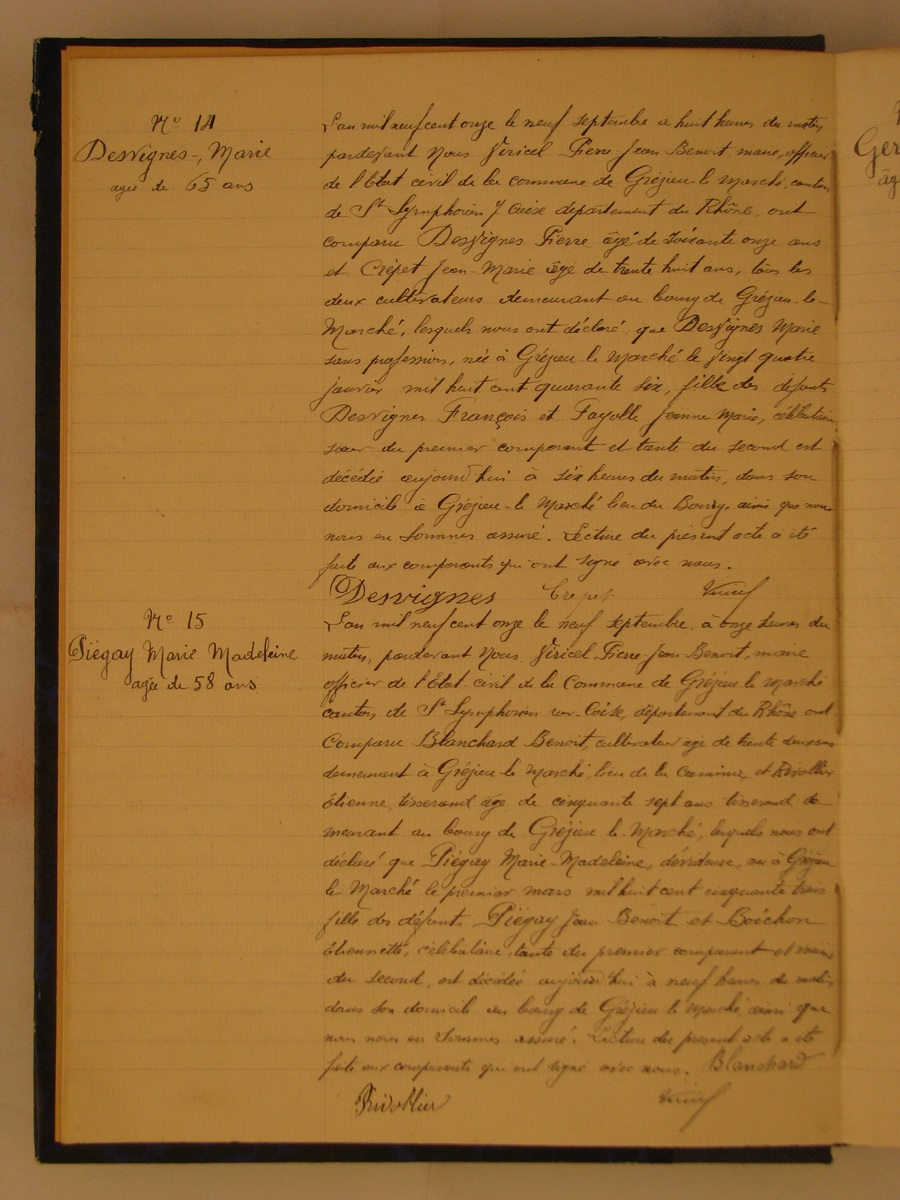 N° 14
Desvignes, Marie
agée de 65 ans
L'an mil neuf cent onze le neuf septembre a huit heures du matin
pardevant Nous Viricel Pierre Jean Benoit, maire, officier
de l'Etat civil de la commune de Grézieu-le Marché, canton
de St Symphorien s/ Coise département du Rhône, ont
comparu Desvignes Pierre âgé de soixante onze ans
et Crépet Jean-Marie âgé de trente huit ans, tous les
deux cultivateurs demeurant au bourg de Grézieu-le-
Marché, lesquels nous ont déclaré, que Desvignes Marie
sans profession, née à Grézieu-le Marché le vingt quatre
janvier mil huit cent quarante six, fille des défunts
Desvignes François et Fayolle Jeanne Marie, célibataire
sœur du premier comparant et tante du second est
décédée aujourd'hui à six heures du matin, dans son
domicile à Grézieu-le Marché lieu du Bourg, ainsi que nous
nous en sommes assuré. Lecture du présent acte a été
faite aux comparants qui ont signé avec nous.
Desvignes Crepet Viricel
N° 15
Piégay Marie Madeleine
agée de 58 ans
L'an mil neuf cent onze le neuf septembre, à onze heures du
matin, pardevant Nous Viricel Pierre-Jean-Benoit, maire
officier de l'Etat civil de la Commune de Grézieu le Marché
canton de St Symphorien sur-Coise, département du Rhône ont
Comparu Blanchard Benoit, cultivateur âgé de trente deux ans
demeurant à Grézieu-le Marché, lieu de la et Rivollier
Étienne, tisserand âgé de cinquante sept ans tisserand de
meurant au bourg de Grézieu le Marché, lesquels nous ont
déclaré que Piégay Marie-Madeleine, dévideuse, née à Grézieu
le Marché le premier mars mil huit cent cinquante trois
fille des défunts Piégay Jean Benoit et Coichon
Etiennette, célibataire, tante du premier comparant et voisine
du second, est décédée aujourd'hui à neuf heures du matin
dans son domicile au bourg de Grézieu le Marché, ainsi que
nous nous en sommes assuré. Lecture du présent acte a été
faite aux comparants qui ont signé avec nous. Blanchard
Rivollier Viricel